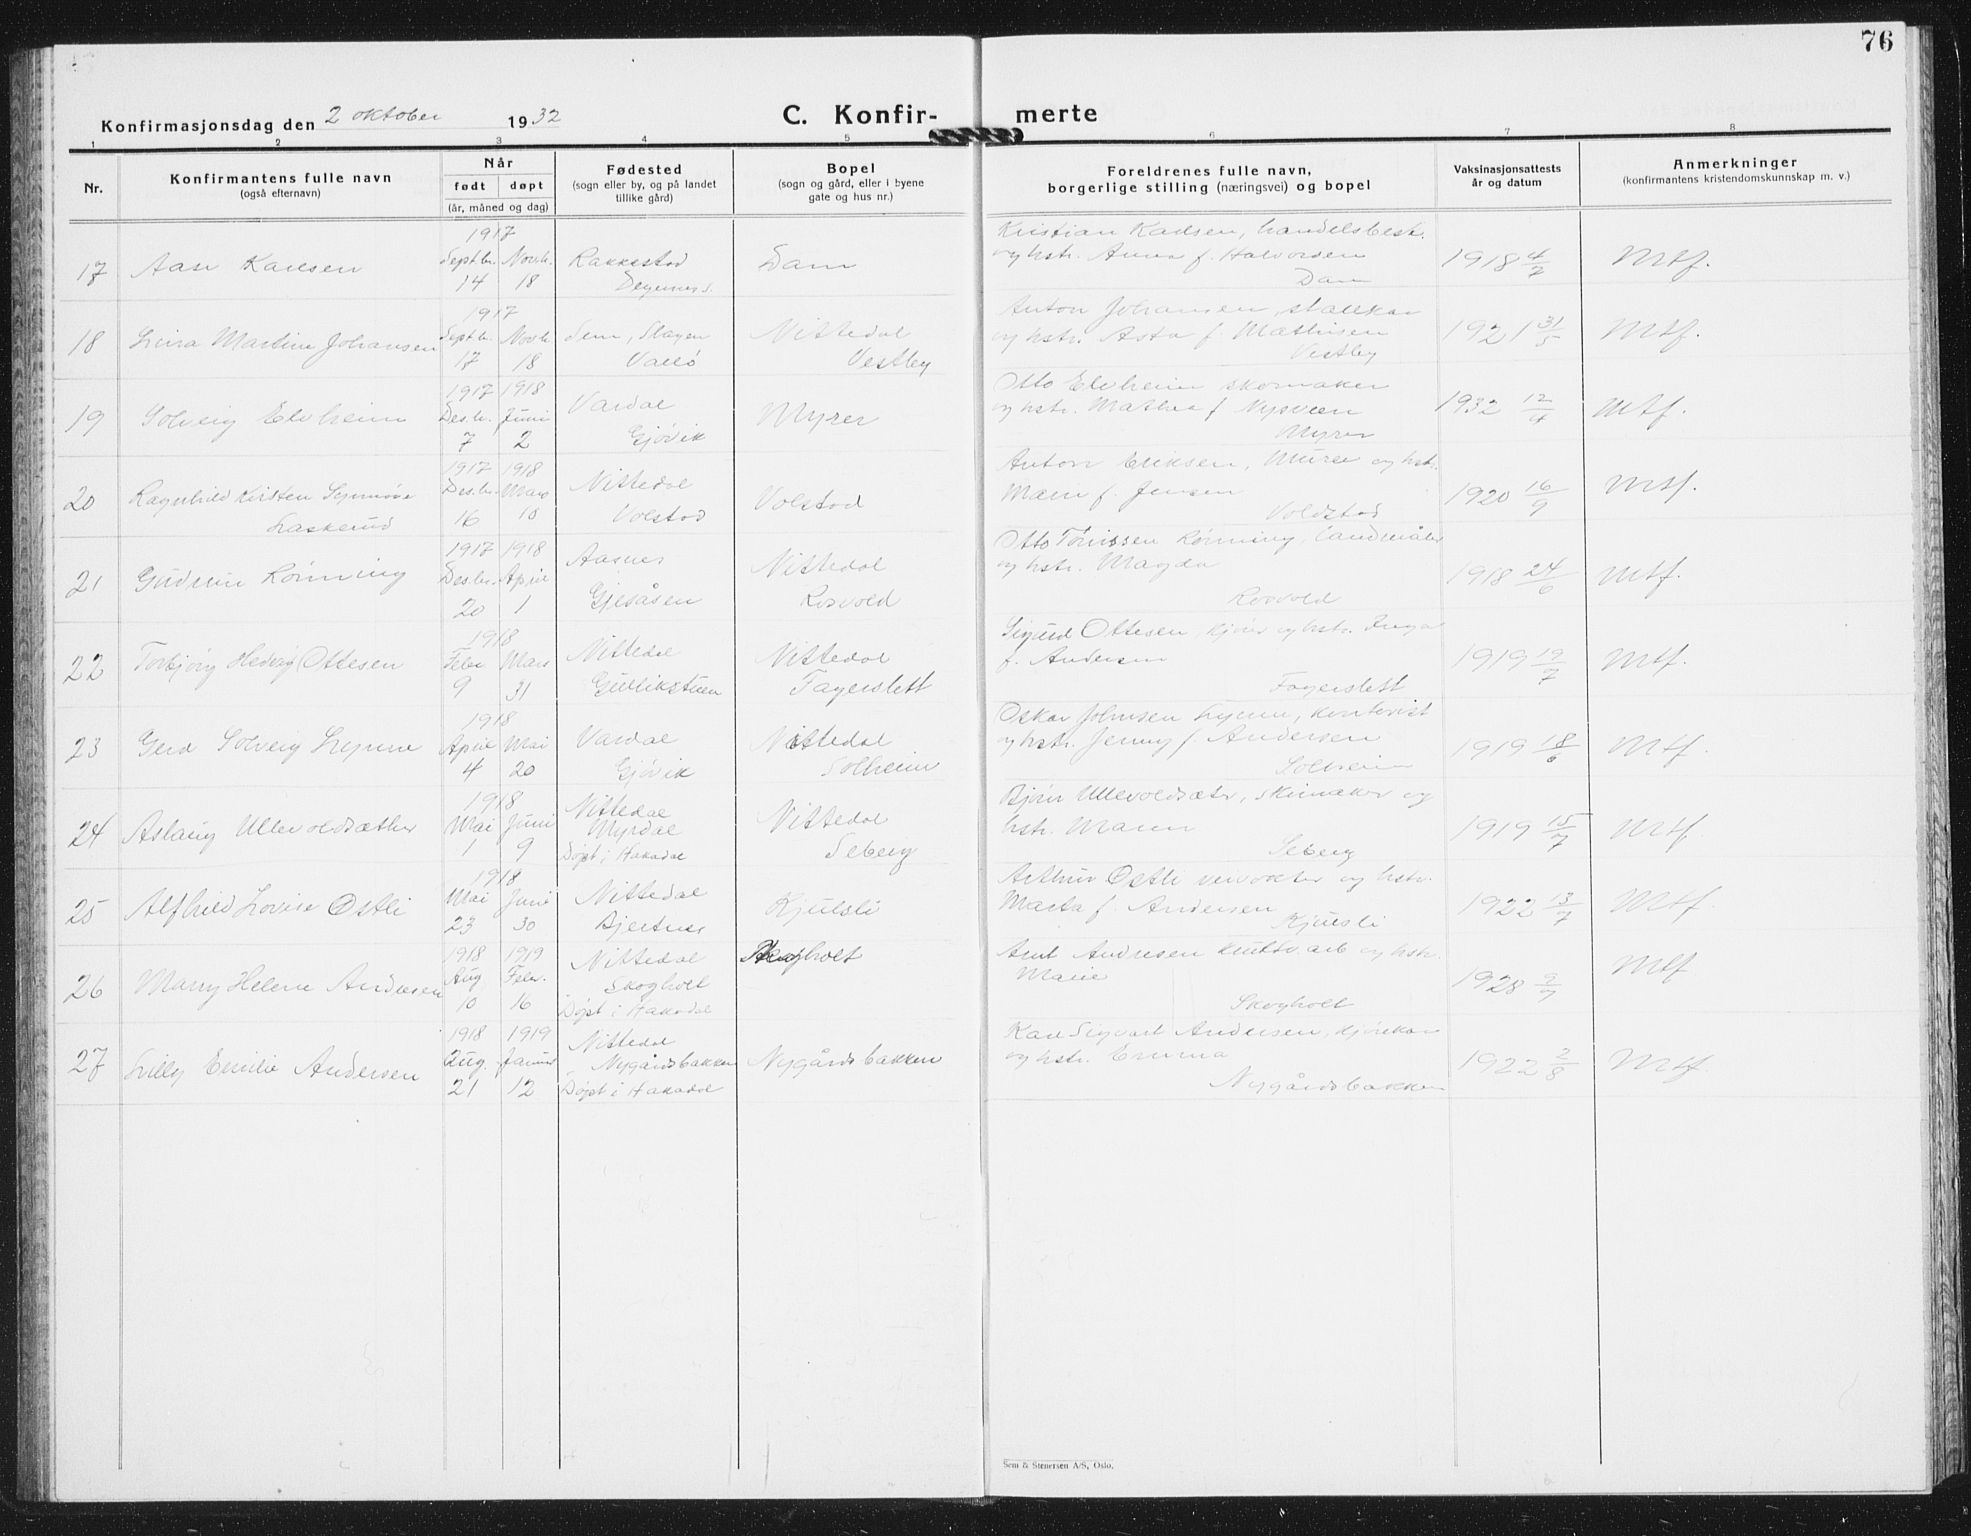 76
Konfirmasjonsdag den 2 oktober 1932
C. Konfir-
merte
1 2 3 4 5 6 7 8
Nr.
Konfirmantens fulle navn
(også efternavn)
Når
født døpt
(år, måned og dag)
Fødested
(sogn eller by, og på landet
tillike gård)
Bopel
(sogn og gård, eller i byene
gate og hus nr.)
Foreldrenes fulle navn,
borgerlige stilling (næringsvei) og bopel
Vaksinasjonsattests
år og datum
Anmerkninger
(konfirmantens kristendomskunnskap m. v.)
17 Aase Karlsen
1917
Septbr. Novb.
14 18
Rakkestad
Degernes s.
Dam
Kristian Karlsen, handelsbest.
og hstr. Anna f. Halvorsen
Dam
1918 4/7
Mtf.
18 Martine Johansen
1917
Septbr. Novb.
17 18
Sem, Slagen
Vallø
Nittedal
Vestby
Anton Johansen, stallkar
og hstr. Asta f. Mathisen
Vestby
1921 31/5
Mtf.
19 Solveig Elvheim
1917 1918
Desbr. Juni
7 2
Vardal
Gjøvik
Myrer
Otto Elvheim skomaker
og hstr. Mathea f. Nysveen
Myrer
1932 12/4
Mtf.
20 Ragnhild Kirsten Synnøve
Laskerud
1917 1918
Desbr. Mars
16 10
Nittedal
Volstad
Volstad
Anton Eriksen, Murer og hstr.
Maen f. Jensen
Voldstad
1920 16/9
Mtf.
21 Gudrun Rønning
1917 1918
Desbr. April
20 1
Aasnes
Gjesåsen
Nittedal
Rosvold
Otto Tønissen Rønning, landmåler
og hstr. Magda
Rosvold
1918 24/6
Mtf.
22 Torbjørg Hedvig Ottesen
1918
Febr Mars
9 31
Nittedal
Gullikstuen
Nittedal
Fagerslett
Sigurd Ottesen, kjører og hstr. Inga
f. Andersen
Fagerslett
1919 19/7
Mtf.
23 Gerd Solveig Lynne
1918
April Mai
4 20
Vardal
Gjøvik
Nittedal
Solheim
Oskar Johnsen Lynne, kontorist
og hstr. Jenny f. Andersen
Solheim
1919 18/6
Mtf.
24 Aslaug Ullevoldsæther
1918
Mai Juni
1 9
Nittedal
Myrdal
Døpt i Hakadal
Nittedal
Seberg
Bjørn Ullevoldsætr, skimaker og
hstr. Maren
Seberg
1919 15/7
Mtf
25 Alfhild Lovise Østli
1918
Mai Juni
23 30
Nittedal
Bjertnes
Kjulsli
Arthur Østli veivokter og hstr.
Marta f. Andersen
Kjulsli
1922 13/7
Mtf.
26 Mary Helene Andresen
1918 1919
Aug Febr.
10 16
Nittedal
Skogholt
Døpt i Hakadal
Skogholt
Arnt Andresen kruttv. arb og hstr.
Marie
Skogholt
1928 9/7
Mtf
27 Lilly Emilie Andersen
1918 1919
Aug. Januar
21 12
Nittedal
Nygårdsbakken
Døpt i Hakadal
Nygårdsbakken
Karl Sigvart Andersen, kjørekar
og hstr. Emma
Nygårdsbakken
1922 2/8
Mtf.
Sem & Stenersen A/S, Oslo.